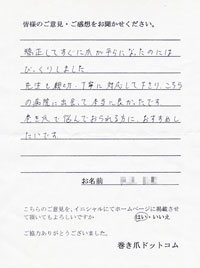 皆様のご意見・ご感想をお聞かせください。
矯正してすぐに爪が平らになったのには
びっくりしました
先生も親切、丁寧に対応して下さり、こちら
の病院に出会えて本当に良かったです。
巻き爪で悩んでおられる方に、おすすめし
たいです。
お名前
こちらのご意見を、イニシャルにてホームページに掲載させ
て頂いてもよろしいですか
はい・いいえ
ご協力ありがとうございました。
巻き爪ドットコム